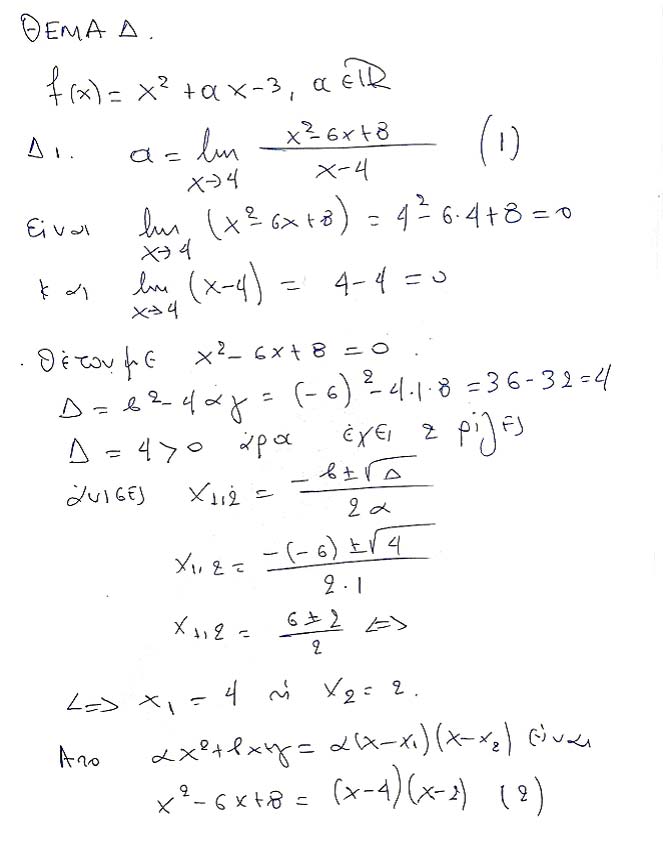 ΘΕΜΑ Δ.
f(x) = x² + αx - 3, α ∈ ℝ
Δ1. α = lim_{x→4} (x² - 6x + 8)/(x - 4) (1)
Είναι lim_{x→4} (x² - 6x + 8) = 4² - 6·4 + 8 = 0
και lim_{x→4} (x - 4) = 4 - 4 = 0
. Θέτουμε x² - 6x + 8 = 0.
Δ = β² - 4αγ = (-6)² - 4·1·8 = 36 - 32 = 4
Δ = 4 > 0 άρα έχει 2 ρίζες
άνισες x₁,₂ = (-β ± √Δ)/(2α)
x₁,₂ = (-(-6) ± √4)/(2·1)
x₁,₂ = (6 ± 2)/2 <=>
<=> x₁ = 4 ή x₂ = 2.
Από αx² + βx + γ = α(x - x₁)(x - x₂) είναι
x² - 6x + 8 = (x - 4)(x - 2) (2)